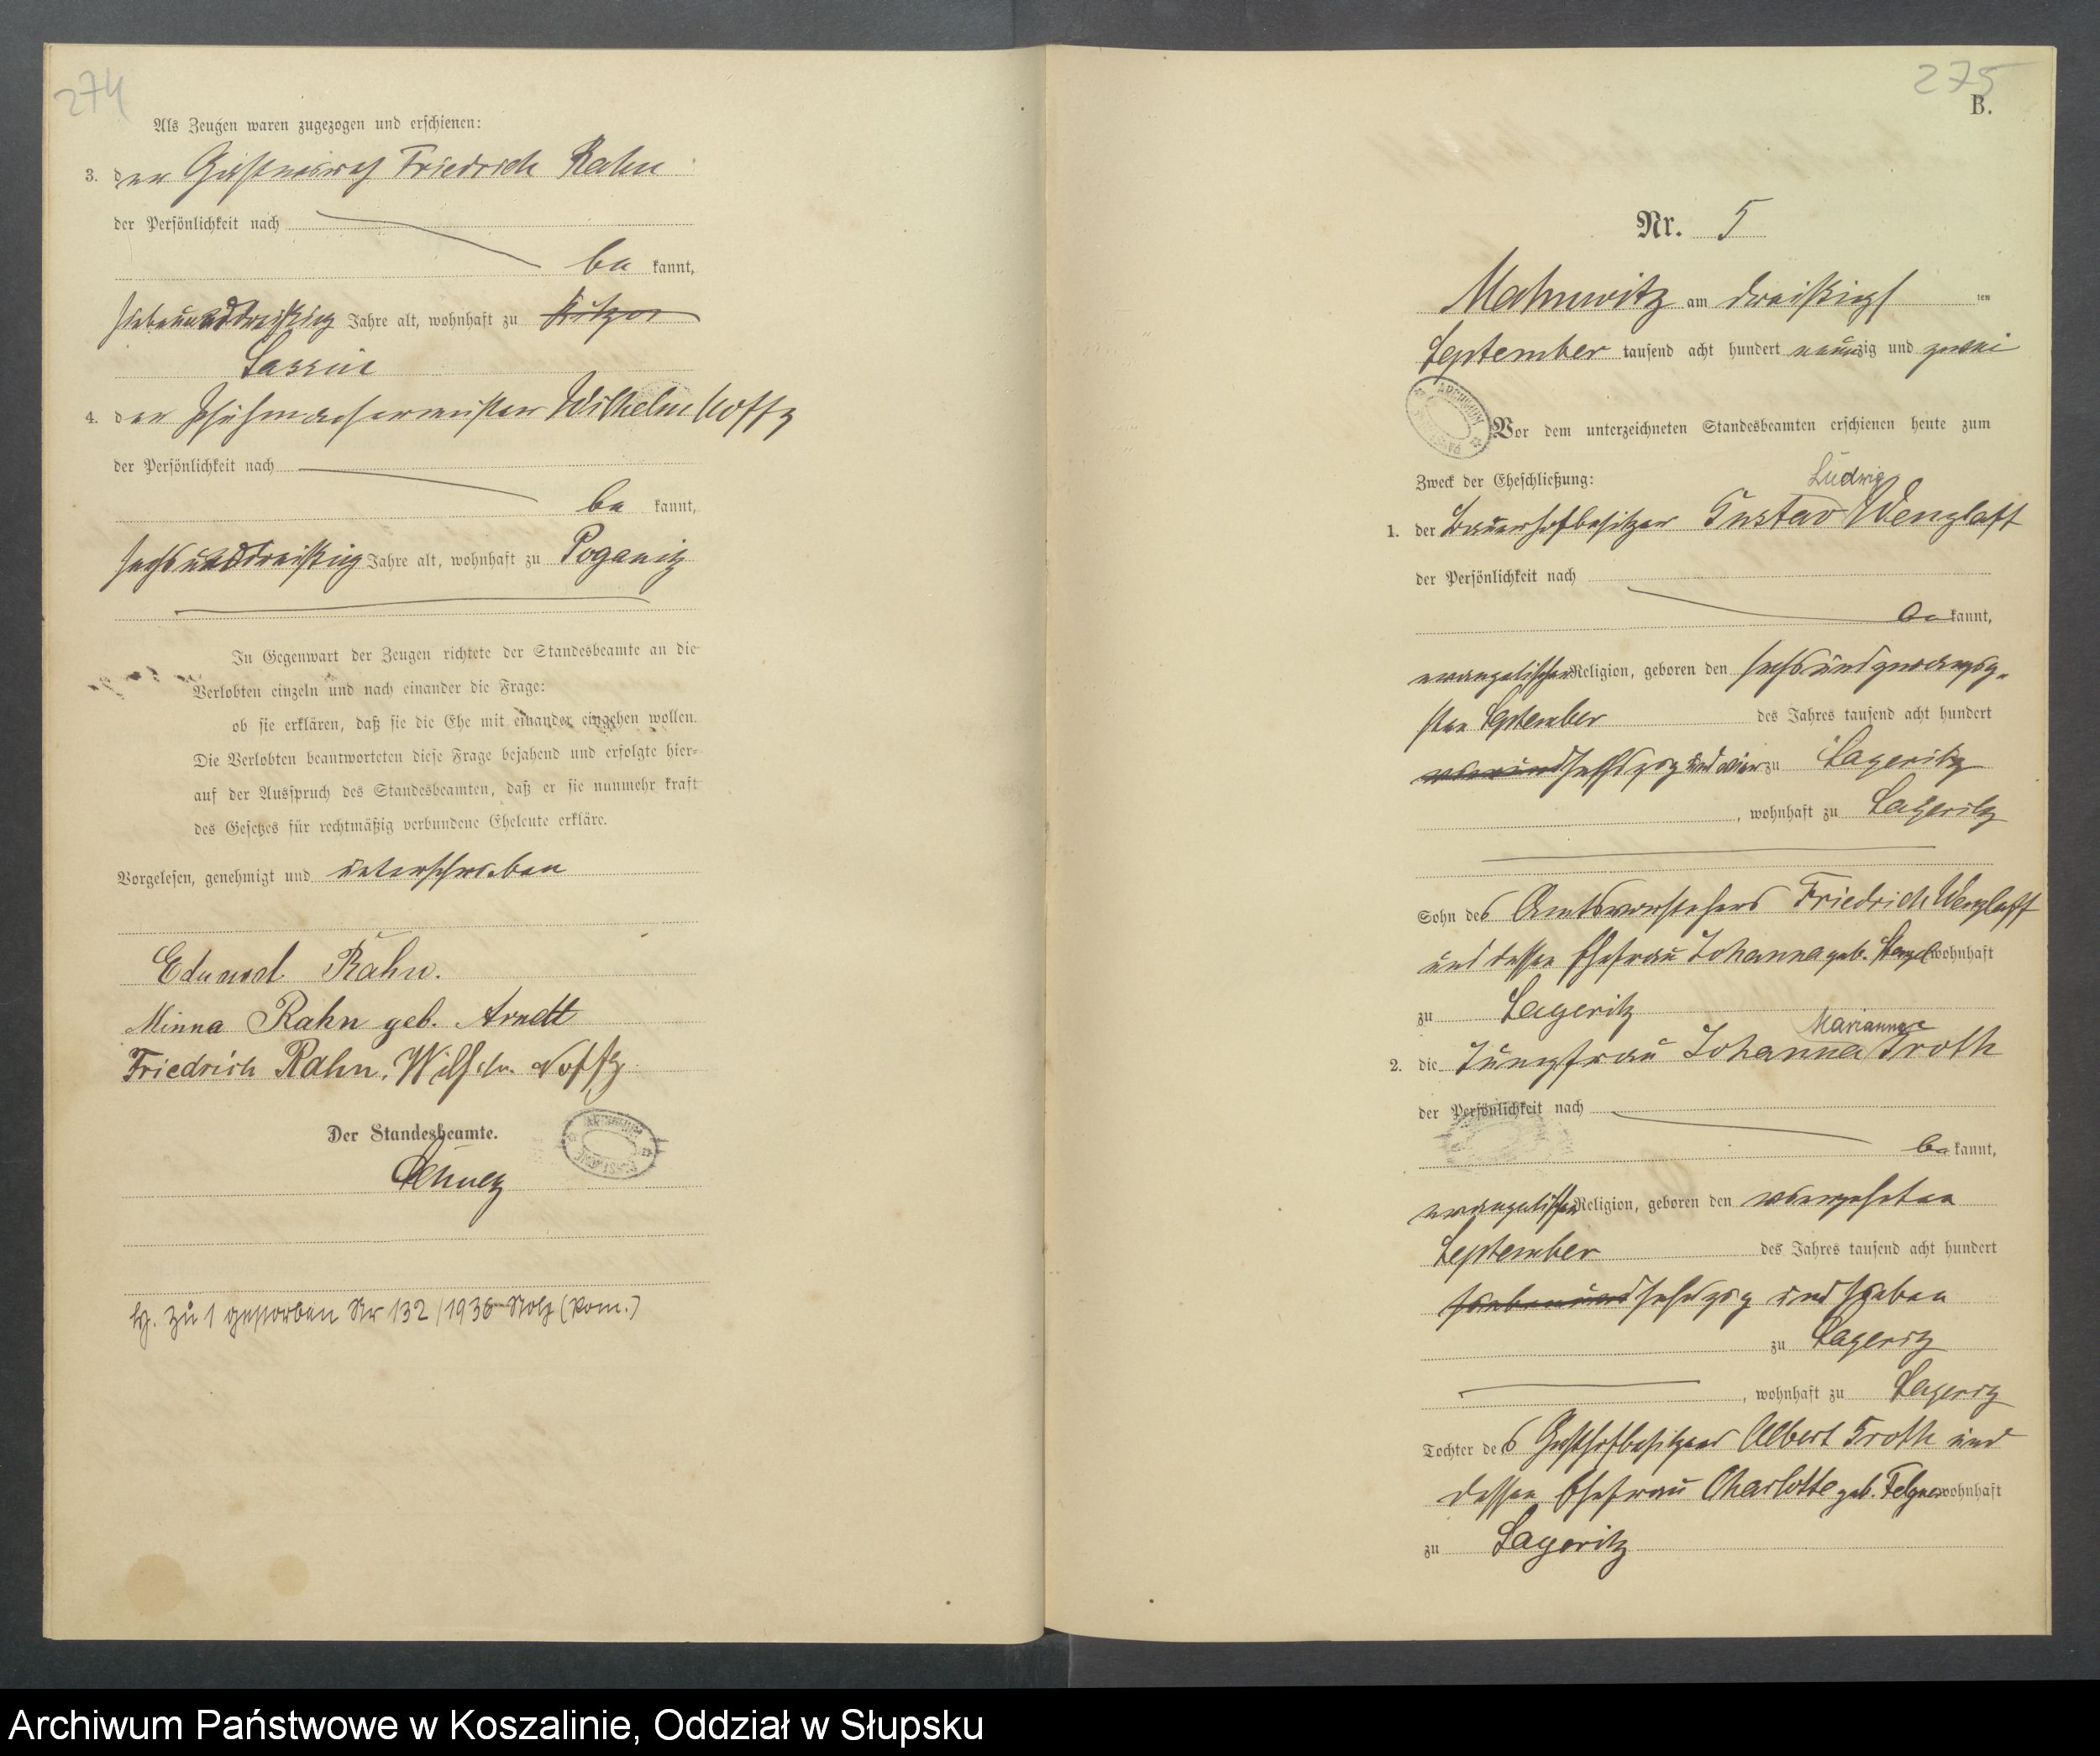 274
Als Zeugen waren zugezogen und erschienen:
3. der Friedrich Rahn
der Persönlichkeit nach
be kannt,
siebenunddreißig Jahre alt, wohnhaft zu
Lassin
4. der Schuhmachermeister Wilhelm Noffz
der Persönlichkeit nach
be kannt,
sechsunddreißig Jahre alt, wohnhaft zu Poganitz
In Gegenwart der Zeugen richtete der Standesbeamte an die
Verlobten einzeln und nach einander die Frage:
ob sie erklären, daß sie die Ehe mit einander eingehen wollen.
Die Verlobten beantworteten diese Frage bejahend und erfolgte hier-
auf der Ausspruch des Standesbeamten, daß er sie nunmehr kraft
des Gesetzes für rechtmäßig verbundene Eheleute erkläre.
Vorgelesen, genehmigt und unterschrieben
Eduard Rahn.
Minna Rahn geb. Arndt
Friedrich Rahn. Wilhelm Noffz
Der Standesbeamte.
zu 1 gestorben Nr 132/1936 Stolp (Pom.)
275
B.
Nr. 5
Mahnwitz am dreißigsten
September tausend acht hundert neunzig und zwei
Vor dem unterzeichneten Standesbeamten erschienen heute zum
Zweck der Eheschließung:
Ludwig
1. der Bauerhofbesitzer Gustav Wenzlaff
der Persönlichkeit nach
be kannt,
evangelischer Religion, geboren den sechsundzwanzig-
sten September des Jahres tausend acht hundert
vierund sechszig und vier zu Lageritz
, wohnhaft zu Lageritz
Sohn des Amtsvorstehers Friedrich Wenzlaff
und dessen Ehefrau Johanna geb. wohnhaft
zu Lageritz
Marianne
2. die Jungfrau Johanna Troth
der Persönlichkeit nach
be kannt,
evangelischer Religion, geboren den vierzehnten
September des Jahres tausend acht hundert
siebenund sechszig und sieben
zu Lageritz
, wohnhaft zu Lageritz
Tochter des Gasthofbesitzers Albert Troth und
dessen Ehefrau Charlotte geb. wohnhaft
zu Lageritz
Archiwum Państwowe w Koszalinie, Oddział w Słupsku